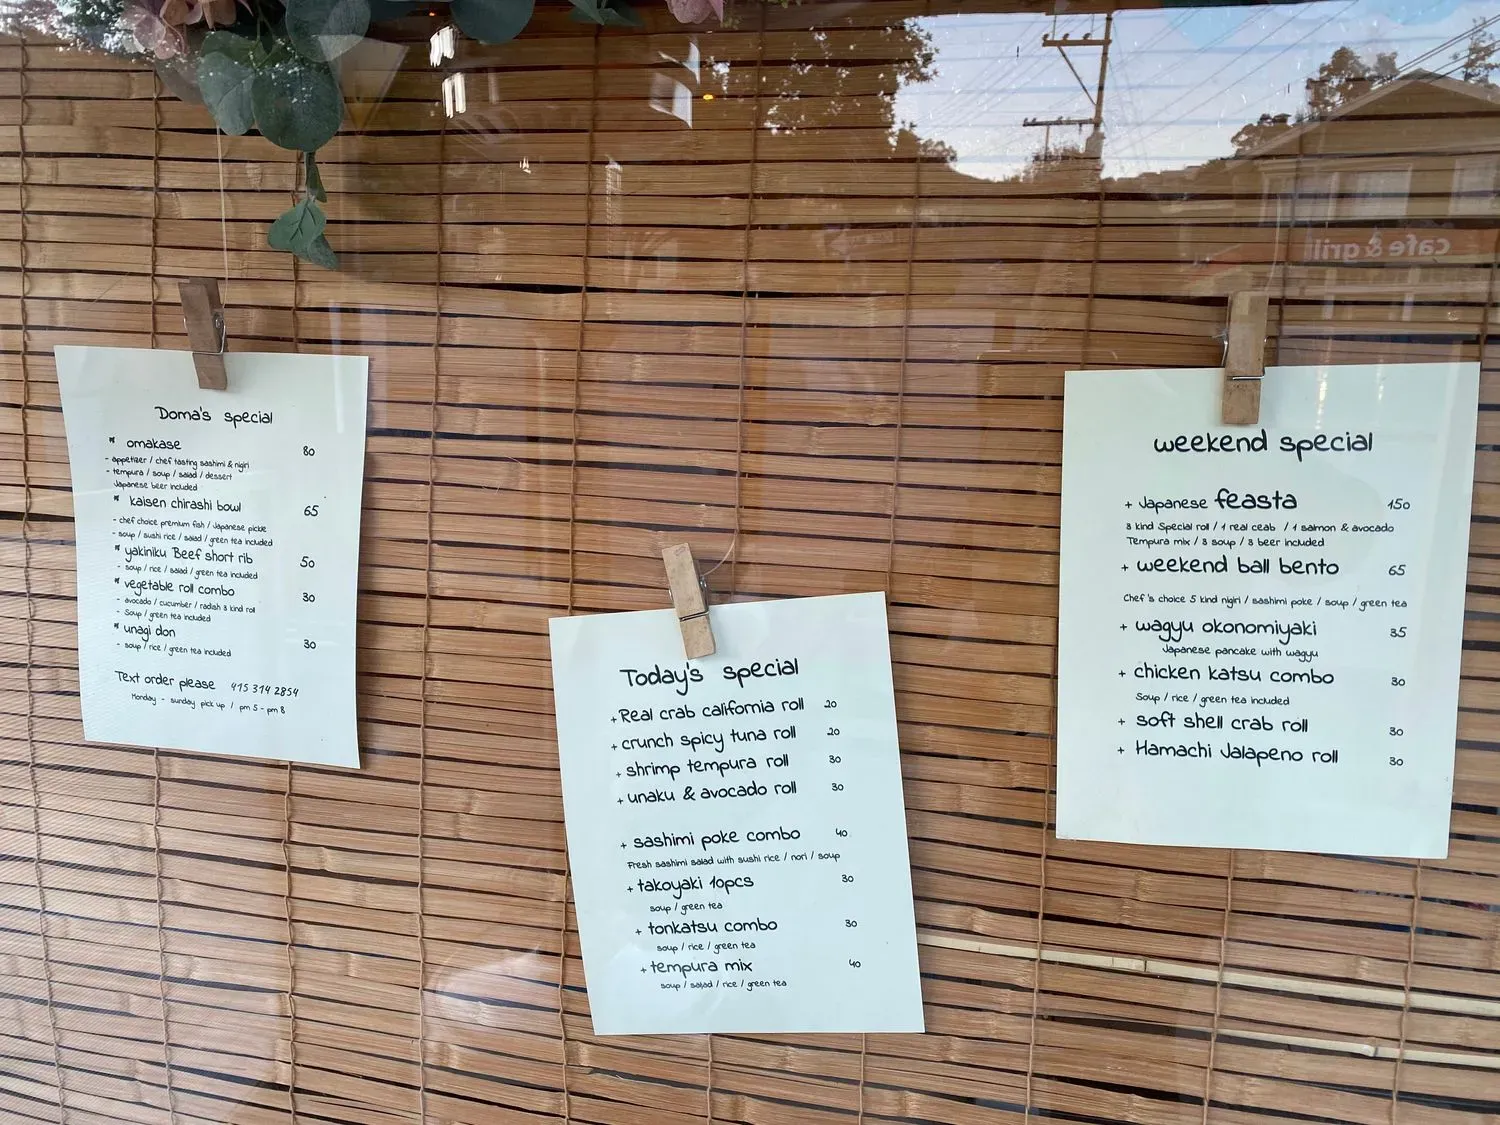 Doma's special
* omakase 80
- appetizer / chef tasting sashimi & nigiri
- tempura / soup / salad / dessert
Japanese beer included
* kaisen chirashi bowl 65
- chef choice premium fish / Japanese pickle
- soup / sushi rice / salad / green tea included
* yakiniku Beef short rib 50
- soup / rice / salad / green tea included
* vegetable roll combo 30
- avocado / cucumber / radish 3 kind roll
- Soup / green tea included
* unagi don 30
- soup / rice / green tea included
Text order please 415 314 2854
Monday - sunday pick up / pm 5 - pm 8
Today's special
+ Real crab california roll 20
+ crunch spicy tuna roll 20
+ shrimp tempura roll 30
+ unaku & avocado roll 30
+ sashimi poke combo 40
Fresh sashimi salad with sushi rice / nori / soup
+ takoyaki 10pcs 30
soup / green tea
+ tonkatsu combo 30
soup / rice / green tea
+ tempura mix 40
soup / salad / rice / green tea
weekend special
+ Japanese feasta 150
3 kind Special roll / 1 real ceab / 1 salmon & avocado
Tempura mix / 3 soup / 3 beer included
+ weekend ball bento 65
Chef's choice 5 kind nigiri / sashimi poke / soup / green tea
+ wagyu okonomiyaki 35
Japanese pancake with wagyu
+ chicken katsu combo 30
Soup / rice / green tea included
+ soft shell crab roll 30
+ Hamachi Jalapeno roll 30
cafe & grill